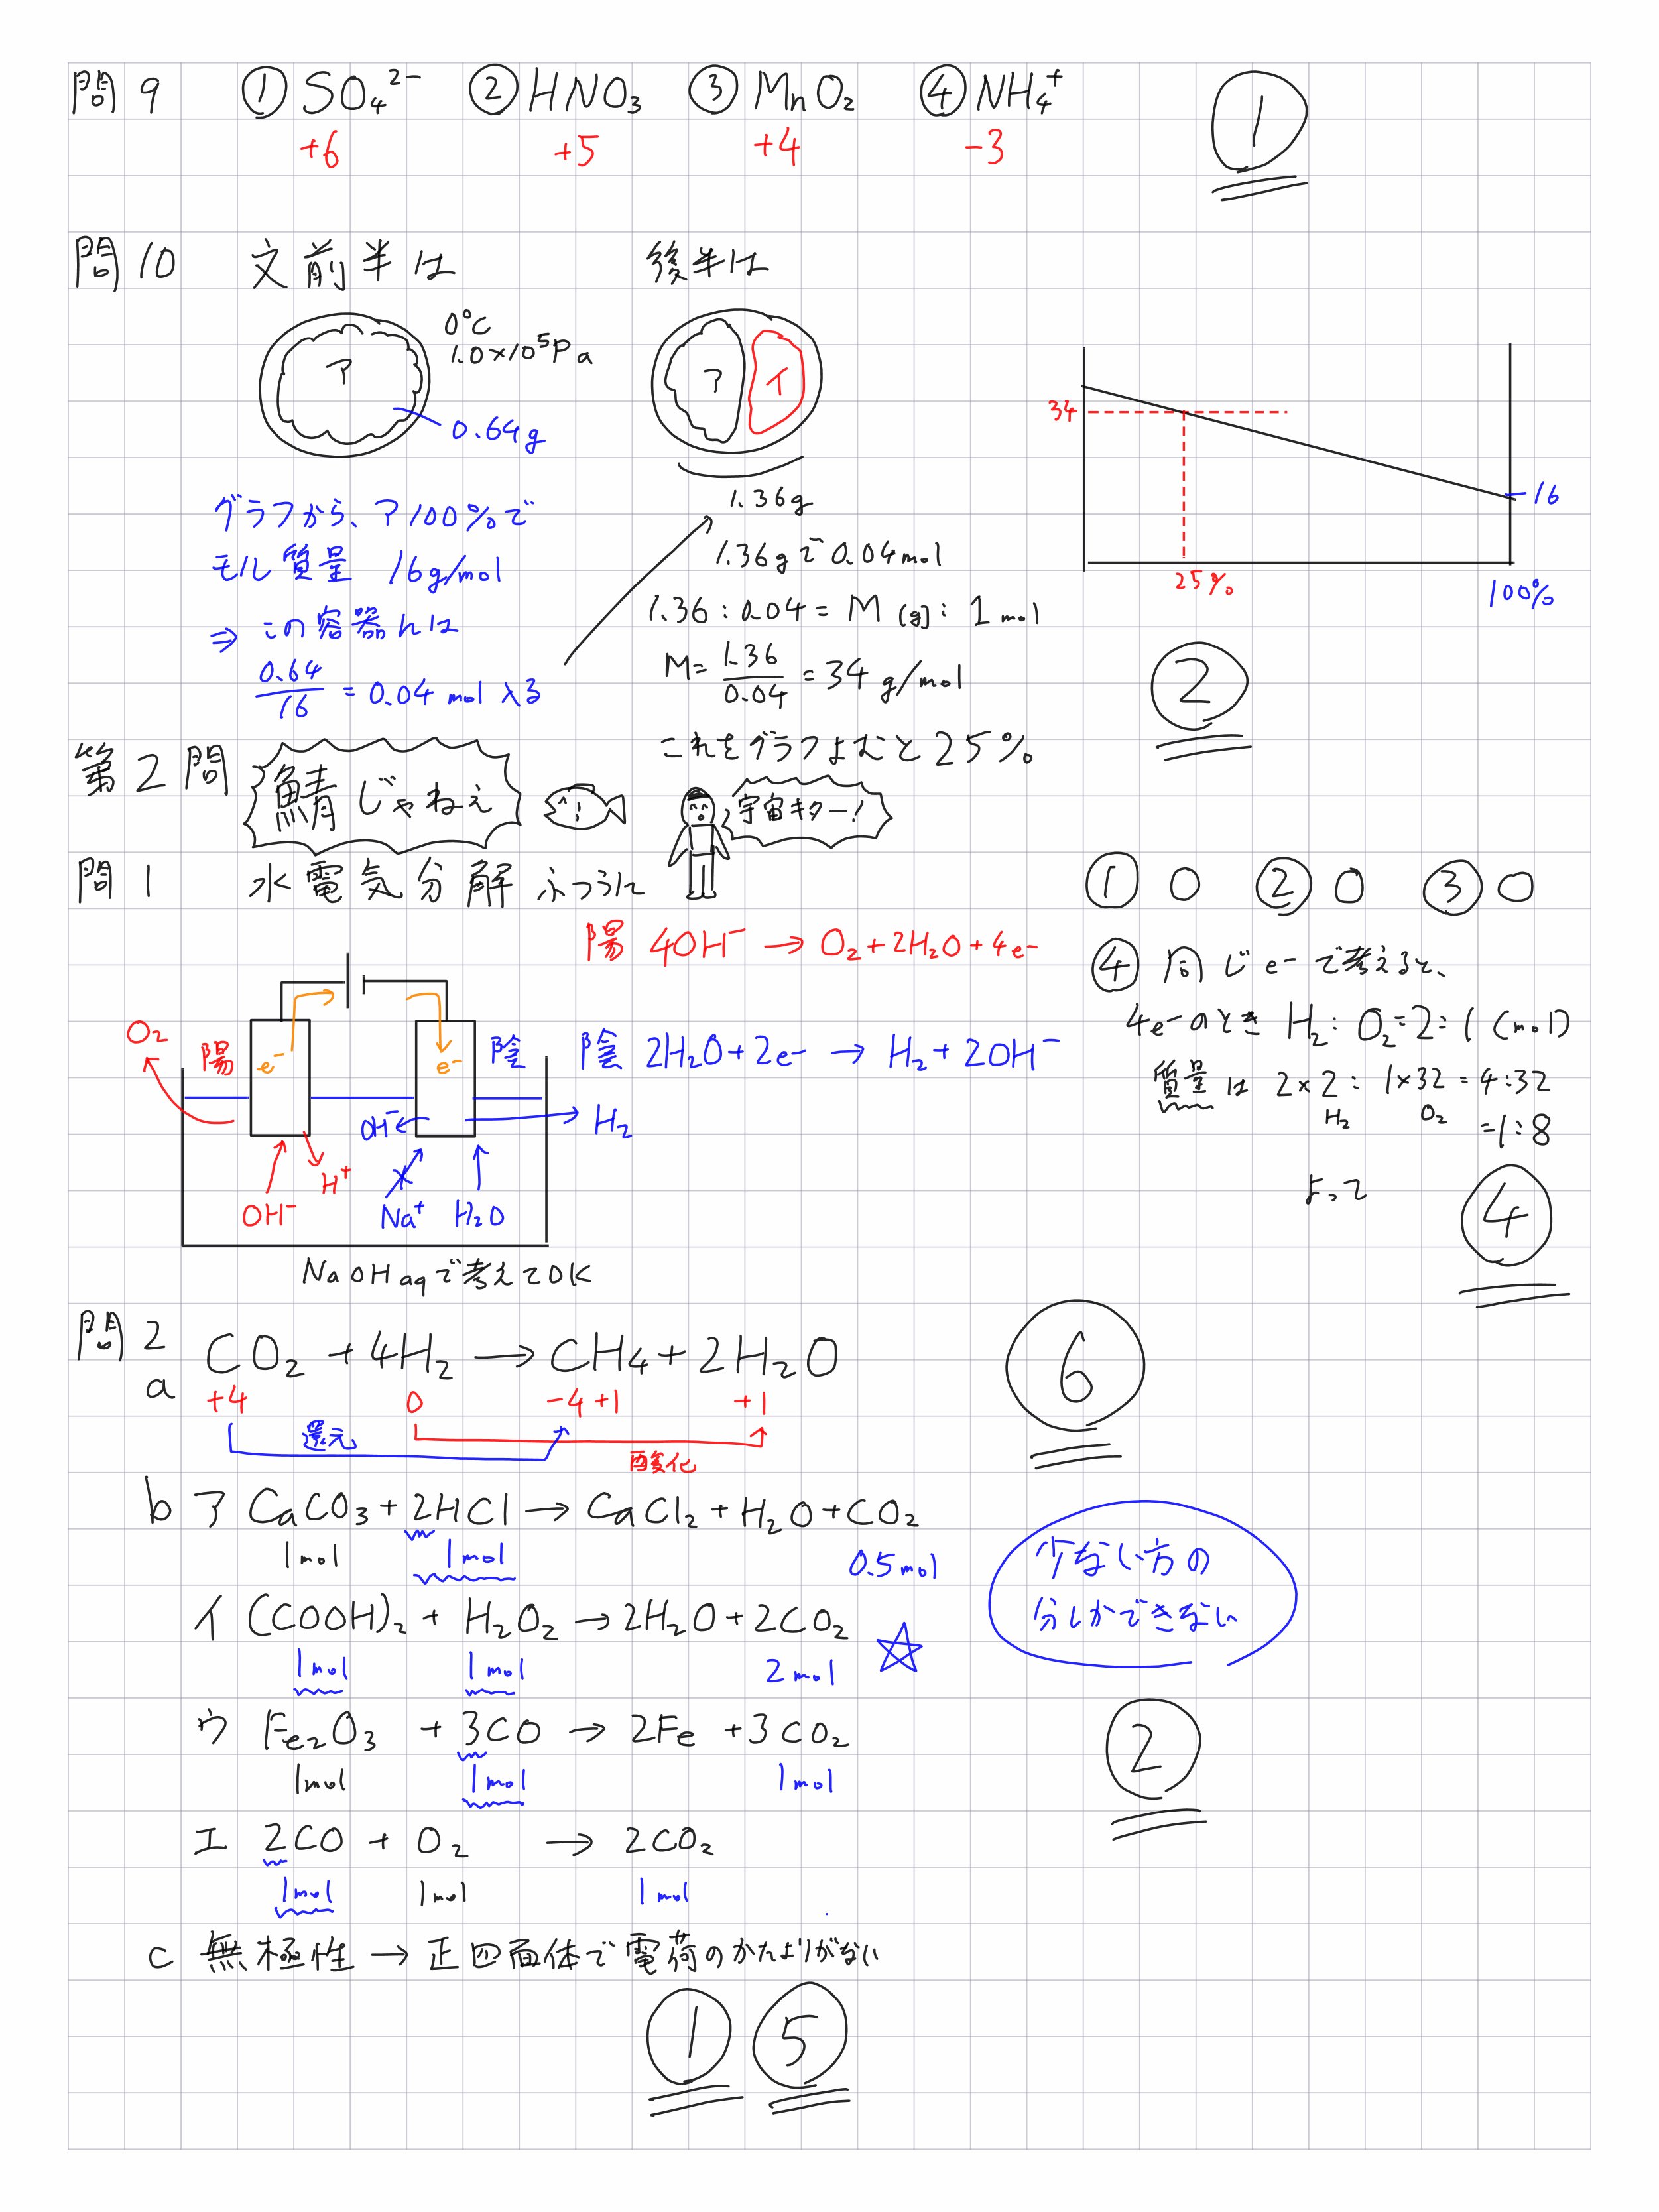 問9 ① SO₄²⁻ ② HNO₃ ③ MnO₂ ④ NH₄⁺ ①
+6 +5 +4 -3
問10 文前半は 後半は
ア 0℃
1.0×10⁵Pa
0.64g
ア イ
1.36g
グラフから、ア100%で
モル質量 16g/mol
⇒ この容器んは
0.64/16 = 0.04 mol 入る
1.36gで0.04mol
1.36:0.04 = M (g): 1mol
M= 1.36/0.04 = 34 g/mol
これをグラフよむと25%
34
16
25% 100%
②
第2問 鯖じゃねぇ 宇宙キター!
問1 水電気分解ふつうに
陽 4OH⁻ → O₂+2H₂O+4e⁻
陰 2H₂O+2e⁻ → H₂+2OH⁻
O₂ 陽 e⁻ e⁻ 陰
OH⁻ H₂
H⁺
OH⁻ Na⁺ H₂O
NaOHaqで考えてOK
① 0 ② 0 ③ 0
④ 同じe⁻で考えると、
4e⁻のとき H₂:O₂=2:1 (mol)
質量は 2×2:1×32=4:32
H₂ O₂ =1:8
よって ④
問2
a CO₂ + 4H₂ → CH₄ + 2H₂O ⑥
+4 0 -4 +1 +1
還元 酸化
b ア CaCO₃+2HCl→CaCl₂+H₂O+CO₂
1mol 1mol 0.5mol
イ (COOH)₂ + H₂O₂→2H₂O+2CO₂ ☆
1mol 1mol 2mol
ウ Fe₂O₃ + 3CO → 2Fe +3CO₂
1mol 1mol 1mol
エ 2CO + O₂ → 2CO₂
1mol 1mol 1mol
少ない方の
分しかできない
②
c 無極性→正四面体で電荷のかたよりがない
① ⑤